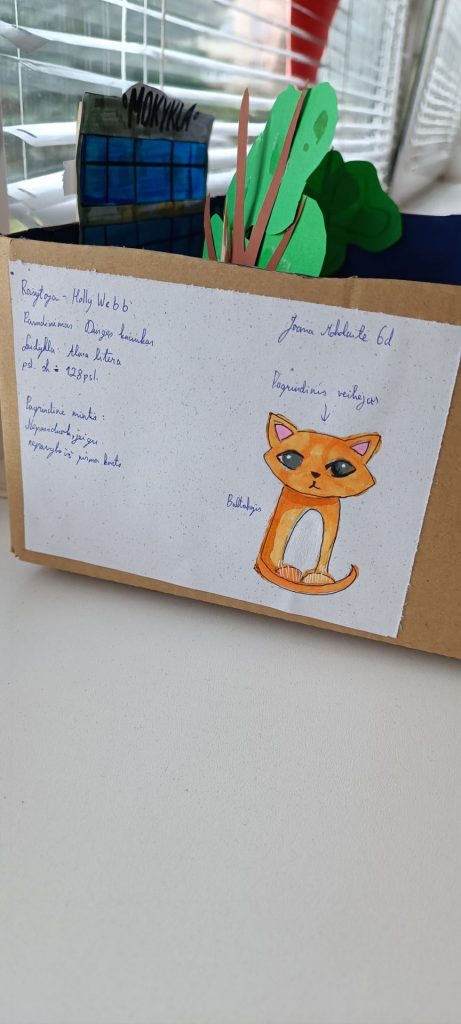 "MOKYKLA"
Rašytoja - Holly Webb
Pavadinimas: Dingęs kačiukas
Leidykla: Alma litera
psl. sk = 128 psl.
Pagrindinė mintis:
Nepasiduok, jeigu
nepavyko iš pirmo karto.
Joana 6d
Pagrindinis veikėjas